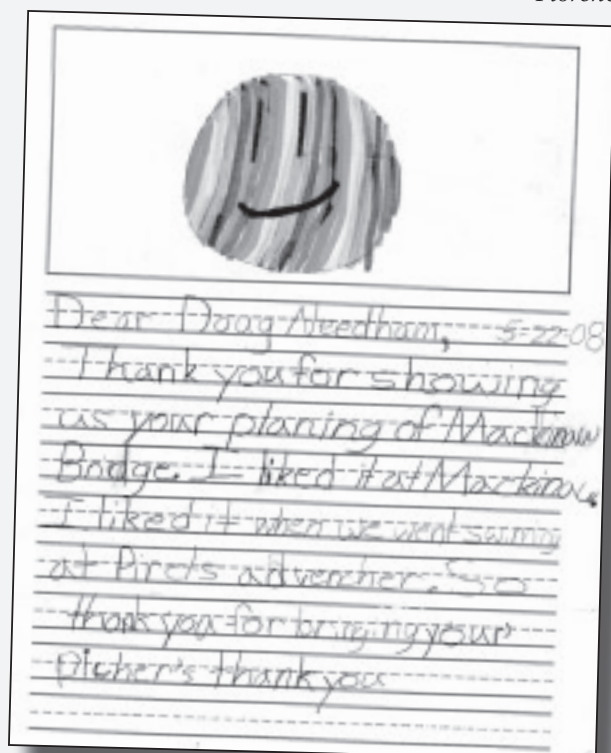 Dear Doug Needham, 5-22-08
Thank you for showing
us your planing of Mackinaw
Bridge. I liked it at Mackinaw.
I liked it when we went
at Pirets advencher. So
thank you for bringing your
picher's thank you